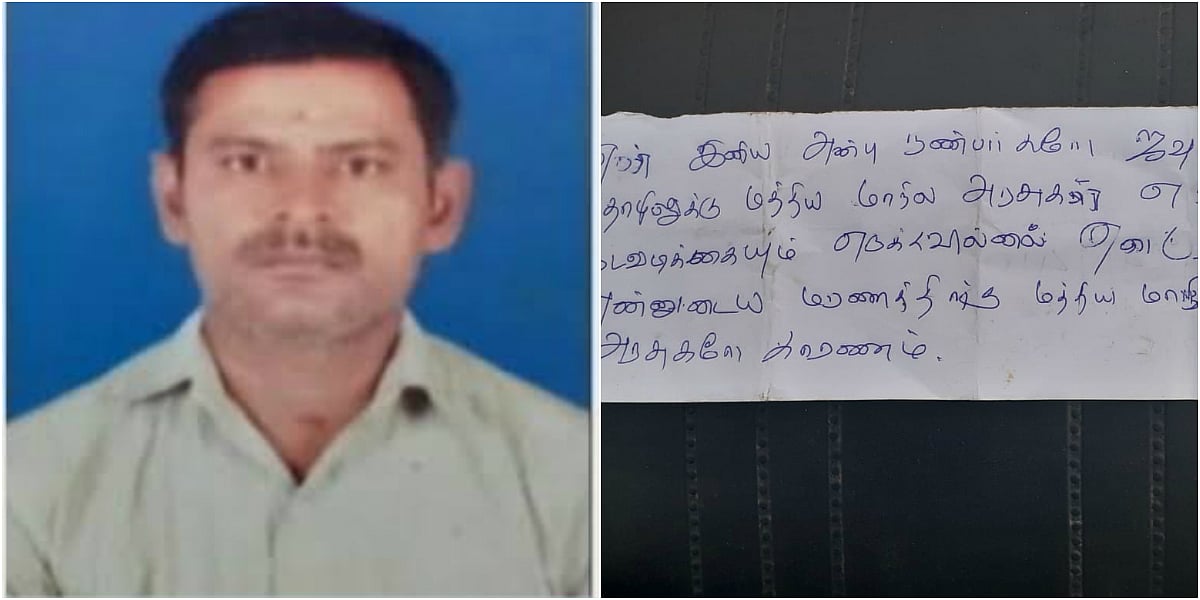 இனிய அன்பு நண்பர்களே ஜவு
தாழிலுக்கு மத்திய மாநில அரசுகள் எ
டவடிக்கையும் எடுக்கவில்லை
என்னுடைய மரணத்திற்கு மத்திய மாநி
அரசுகளே காரணம்.